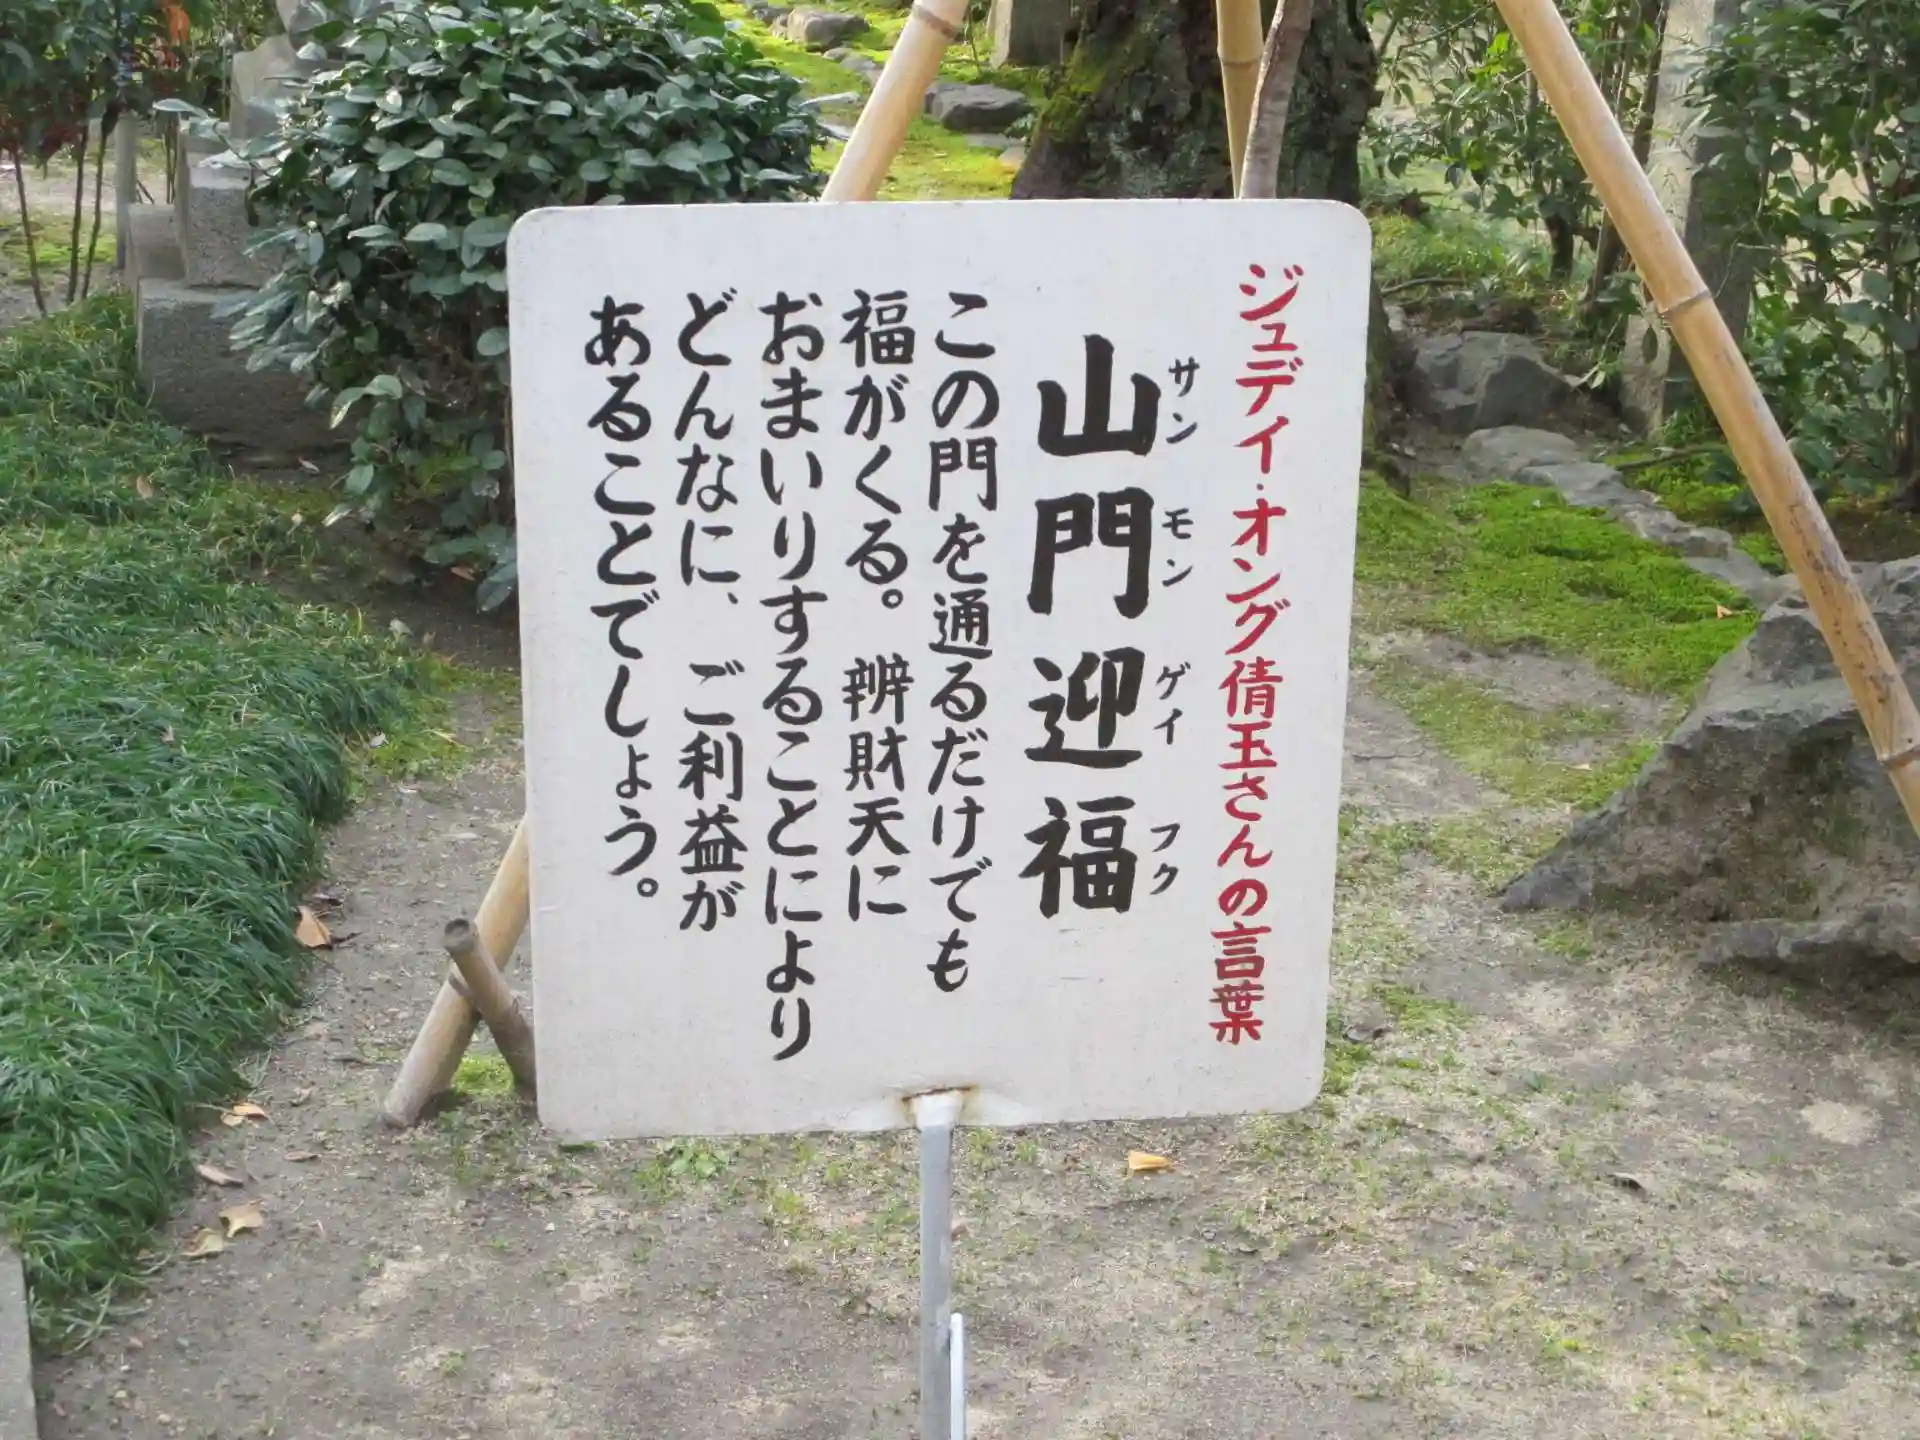 ジュディ・オング倩玉さんの言葉
山門迎福
サンモンゲイフク
この門を通るだけでも
福がくる。辨財天に
おまいりすることにより
どんなに、ご利益が
あることでしょう。